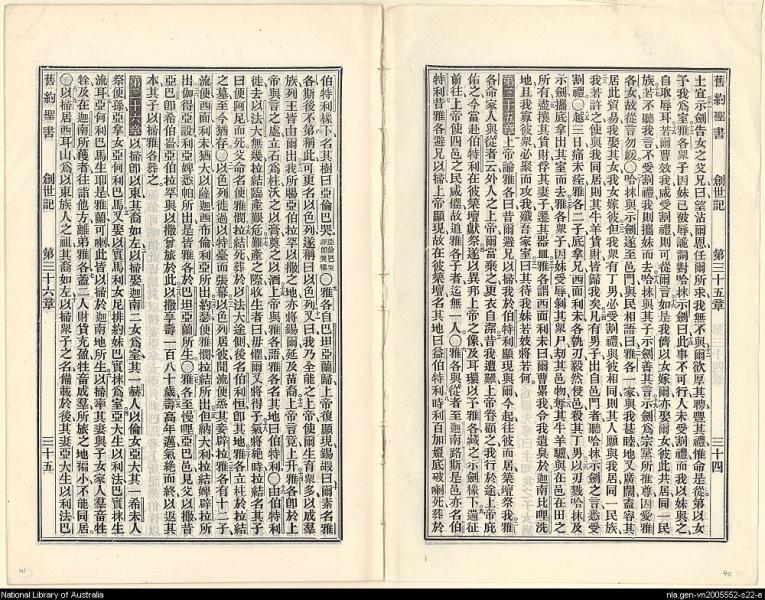 舊約聖書 創世記 第三十五章 三十四
土宜示劍告女之父兄曰望沾爾恩任爾所求我無不與爾欲厚其聘豐其禮惟命是從第以女
予我爲室雅各衆子因妹已被辱詭詞對哈抹示劍曰此事不可行人未受割禮而我以妹與之
自取辱耳若爾曹效我咸受割禮則可從爾言如是我儕以女嫁爾亦娶爾女彼此共居同一民
族若不聽我言不受割禮則我攜妹而去哈抹與其子示劍善其言示劍爲宗黨所推尊因愛雅
各女故從言勿緩哈抹與示劍遂至邑門與民相語曰雅各一家與我甚睦地又廣闊蓋容其
居此貿易我娶其女我女嫁彼但我衆有丁男必受割禮與彼相同則其人願與我居同一民族
我若許之使與我同居則其牛羊貨財皆歸我矣凡有男子出自邑門者聽哈抹示劍之言悉受
割禮越三日痛未痊雅各二子底拿兄西面利未各執刃毅然侵邑殺其丁男以刃戮哈抹及
示劍攜底拿出其室而去雅各衆子因妹受辱剝其衆尸刧其邑物奪其牛羊驢與在邑在田之
所有盡擄其貨財俘其妻子遷其器皿雅各語西面利未曰爾曹累我令我遺臭於迦南比哩洗
地且我寡彼衆必聚而攻我殲吾家室曰其待我妹若妓將若何
第三十五章 上帝諭雅各曰昔爾避兄以掃我於伯特利顯現與爾今起往彼而居築壇祭我雅
各命家人與從者云外人之上帝爾當棄之更衣自潔昔我遭艱上帝眷顧之我行於途上帝庇
佑之今當起伯特利在彼築壇獻祭遂以異邦上帝之像及耳環以予雅各藏之示劍橡下遄征
前往上帝使四邑之民咸懼故追雅各子者迄無一人雅各與從者至迦南路斯是邑亦名伯
特利昔雅各避兄以掃上帝顯現故在彼築壇名其地曰益伯特利時利百加媼底破喇死葬於
伯特利橡下名其樹曰亞倫巴哭雅各自巴坦亞蘭歸上帝復顯現錫嘏曰爾素名雅
各斯後不第稱此可更名以色列遂稱曰以色列又曰我乃全能之上帝使爾生育衆多以成羣
族列王皆由爾出我所賜亞伯拉罕以撒之地亦將錫爾延及苗裔上帝言竟上升雅各卽於上
帝與言之處立石爲柱沃之以膏奠之以酒上帝與雅各語雅各名其地曰伯特利由伯特利
徙去以法大無幾拉結臨產艱危難產之際收生者曰毋懼爾又將得子氣將絕時拉結名其子
曰便阿尼而死父命名便雅憫拉結死葬於以法大途側後名伯利恒卽其地雅各立柱於拉結
之墓至今猶存以色列徙過以特臺而張幕以色列居彼間流便烝父妾辟拉雅各有十二子
流便西面利未猶大以薩迦西布倫利亞所出約瑟便雅憫拉結所出但納大利拉結婢辟拉所
出伽得亞設利亞婢悉帕所出是皆雅各於巴坦亞蘭所生雅各至慢哩亞巴邑見父以撒昔
亞巴卽希伯崙亞伯拉罕與以撒曾旅於此以撒享壽一百八十歲壽高年邁氣絕而終以返其
本其子以掃雅各葬之
第三十六章 以掃卽以東其裔如左以掃娶迦南二女爲室其一赫人以倫女亞大其一希未人
祭便孫亞拿女亞何利巴馬又娶以實馬利女尼排約妹巴實抹爲室亞大生以利法巴實抹生
流耳亞何利巴馬生耶烏施雅蘭可喇此皆以掃於迦南地所生以掃率其妻與子女家人羣畜牲
牷及在迦南所獲者往詣他方離弟雅各蓋二人財貨充盈牲畜成羣所旅之地褊小不能同居
以掃居西耳山爲以東族人之祖其裔如左以掃衆子之名備載於後其妻亞大生以利法巴
舊約聖書 創世記 第三十六章 三十五
41
40
National Library of Australia
nla.gen-vn2005552-s22-e